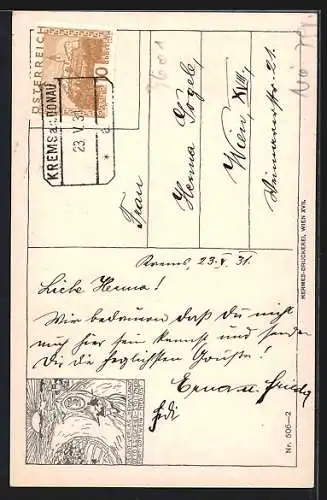 ÖSTERREICH
10
KREMS a.d. DONAU
23 V 31
* a
Frau
Herma
Wien, XVIII,
21.
Krems, 23.V. 31.
Liebe Herma!
Wir bedauern daß Du nicht
mit hier sein kannst und senden
Dir die herzlichsten Grüße!
Erna u.
HERMES-DRUCKEREI, WIEN XVII.
Nr. 506–2